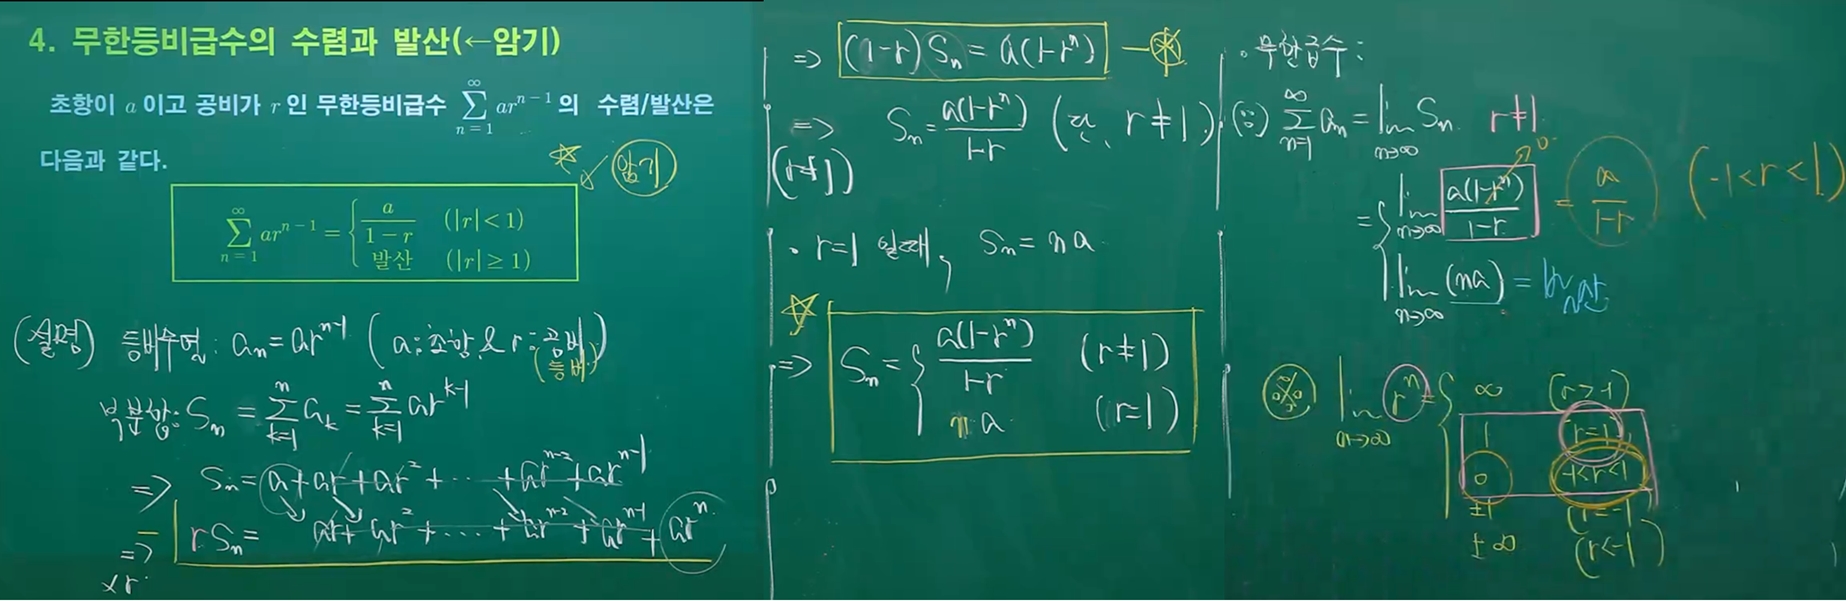 4. 무한등비급수의 수렴과 발산(←암기)
초항이 a 이고 공비가 r 인 무한등비급수 \sum_{n=1}^{∞} ar^{n-1} 의 수렴/발산은
다음과 같다.
☆ ✓ 암기
\sum_{n=1}^{∞} ar^{n-1} = { \frac{a}{1-r} (|r|<1)
발산 (|r|≥1)
(설명) 등비수열: a_n = ar^{n-1} (a:초항 & r:공비)
(등비)
부분합: S_n = \sum_{k=1}^{n} a_k = \sum_{k=1}^{n} ar^{k-1}
⇒ S_n = a+ar+ar^2+⋯+ar^{n-2}+ar^{n-1}
− ⇒ rS_n = ar+ar^2+⋯+ar^{n-2}+ar^{n-1}+ar^n
×r
⇒ (1-r)S_n = a(1-r^n) —⊛
⇒ S_n = \frac{a(1-r^n)}{1-r} (단, r≠1)
(r≠1)
· r=1 일때, S_n = na
☆
⇒ S_n = { \frac{a(1-r^n)}{1-r} (r≠1)
na (r=1)
· 무한급수:
\sum_{n=1}^{∞} a_n = \lim_{n→∞} S_n r≠1
= { \lim_{n→∞} \frac{a(1-r^n)}{1-r} = \frac{a}{1-r} (-1<r<1)
0
\lim_{n→∞} (na) = 발산
※ \lim_{n→∞} r^n = { ∞ (r>1)
1 (r=1)
0 -1<r<1
±1 (r=-1
±∞ (r<-1)